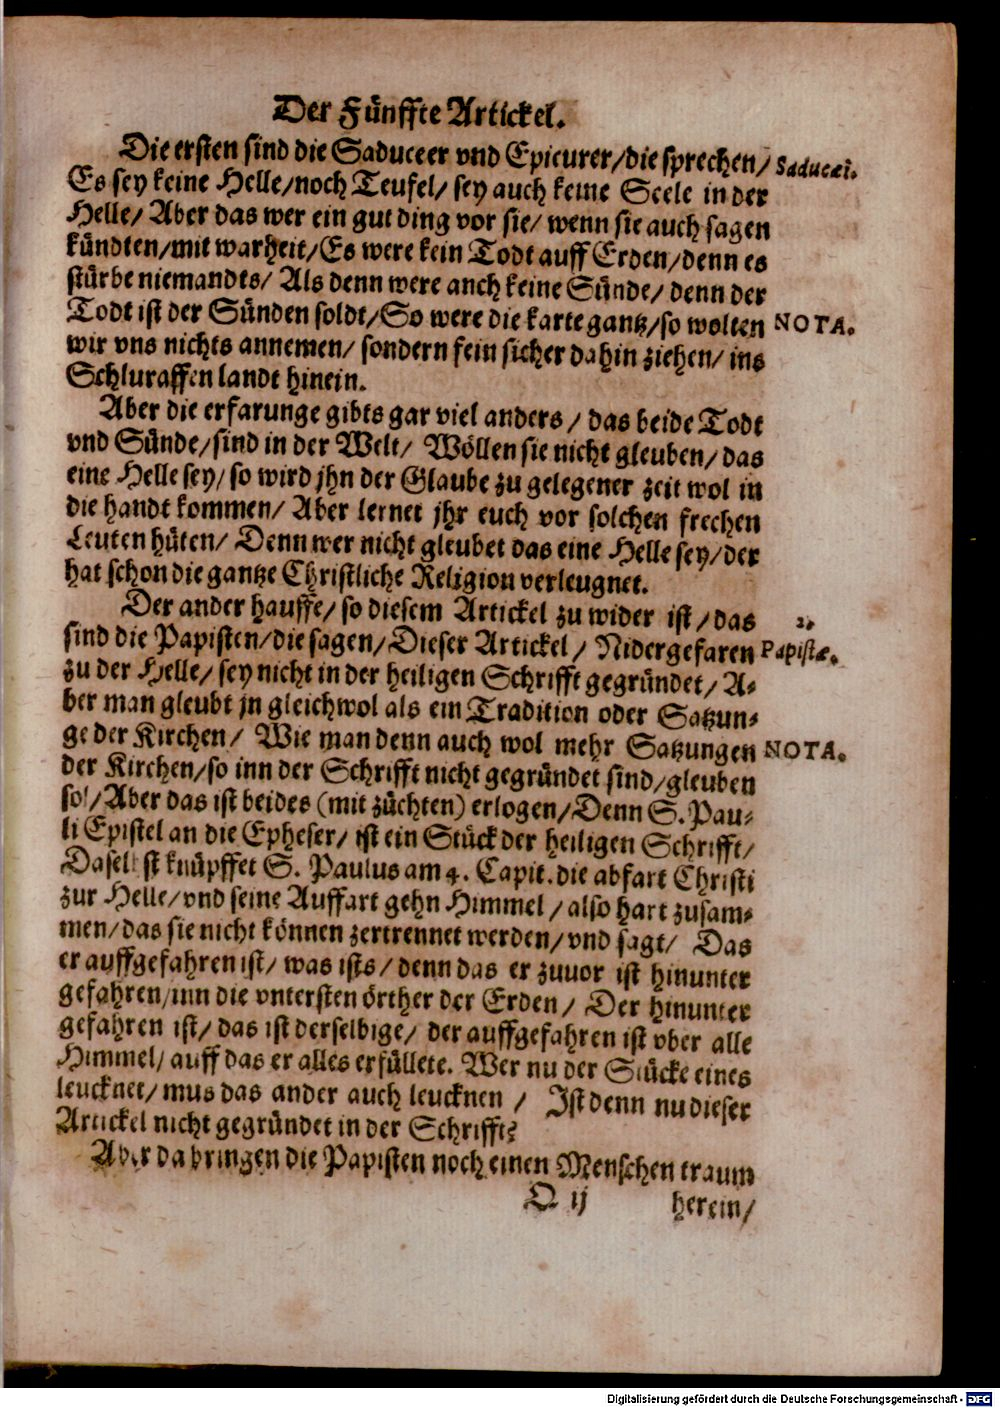 Der Fünffte Artickel.
Die ersten sind die Saduceer vnd Epicurer/die sprechen/ Saducæi.
Es sey keine Helle/noch Teufel/ sey auch keine Seele in der
Helle/ Aber das wer ein gut ding vor sie/ wenn sie auch sagen
kündten/mit warheit/Es were kein Todt auff Erden/denn es
stürbe niemandts/ Als denn were anch keine Sünde/ denn der
Todt ist der Sünden soldt/So were die karte gantz/so wolten NOTA.
wir vns nichts annemen/ sondern fein sicher dahin ziehen/ ins
Schluraffen landt hinein.
Aber die erfarunge gibts gar viel anders / das beide Todt
vnd Sünde/sind in der Welt/ Wöllen sie nicht gleuben/ das
eine Helle sey/ so wird jhn der Glaube zu gelegener zeit wol in
die handt kommen/ Aber lernet jhr euch vor solchen frechen
Leuten hüten/ Denn wer nicht gleubet das eine Helle sey/der
hat schon die gantze Christliche Religion verleugnet.
Der ander hauffe/ so diesem Artickel zu wider ist / das 2.
sind die Papisten/die sagen/Dieser Artickel / Nidergefaren Papistæ.
zu der Helle/ sey nicht in der heiligen Schrifft gegründet/ A-
ber man gleubt jn gleichwol als ein Tradition oder Satzun-
ge der Kirchen/ Wie man denn auch wol mehr Satzungen NOTA.
der Kirchen/so inn der Schrifft nicht gegründet sind/gleuben
sol/Aber das ist beides (mit züchten) erlogen/Denn S.Pau-
li Epistel an die Epheser/ ist ein Stück der heiligen Schrifft/
Daselbst knüpffet S. Paulus am 4. Capit. die abfart Christi
zur Helle/vnd seine Auffart gehn Himmel / also hart zusam-
men/das sie nicht können zertrennet werden/vnd sagt/ Das
er auffgefahren ist/ was ists/ denn das er zuuor ist hinunter
gefahren/inn die vntersten örther der Erden / Der hinunter
gefahren ist/ das ist derselbige/ der auffgefahren ist vber alle
Himmel/ auff das er alles erfüllete. Wer nu der Stücke eines
leucknet/ mus das ander auch leucknen / Ist denn nu dieser
Artickel nicht gegründet in der Schrifft?
Aber da bringen die Papisten noch einen Menschen traum
O ij herein/
Digitalisierung gefördert durch die Deutsche Forschungsgemeinschaft - DFG